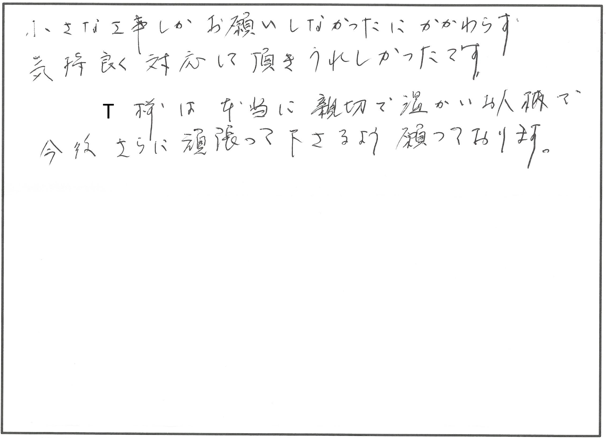 小さな工事しかお願いしなかったにかかわらず
気持良く対応して頂きうれしかったです。
T様は本当に親切で温かいお人柄で
今後さらに頑張って下さるよう願っております。